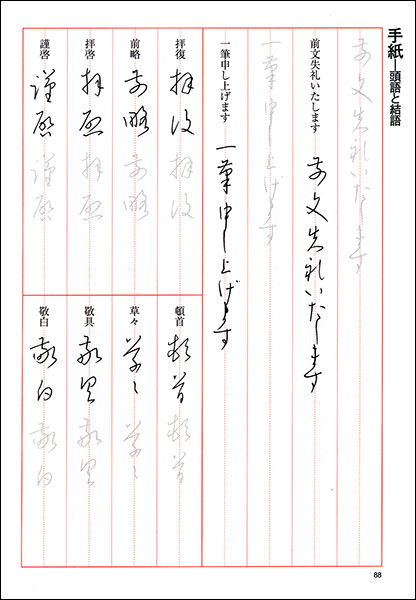 手紙―頭語と結語
前文失礼いたします
前文失礼いたします
前文失礼いたします
一筆申し上げます
一筆申し上げます
一筆申し上げます
拝復
拝復
拝復
前略
前略
前略
拝啓
拝啓
拝啓
謹啓
謹啓
謹啓
頓首
頓首
頓首
草々
草々
草々
敬具
敬具
敬具
敬白
敬白
敬白
88